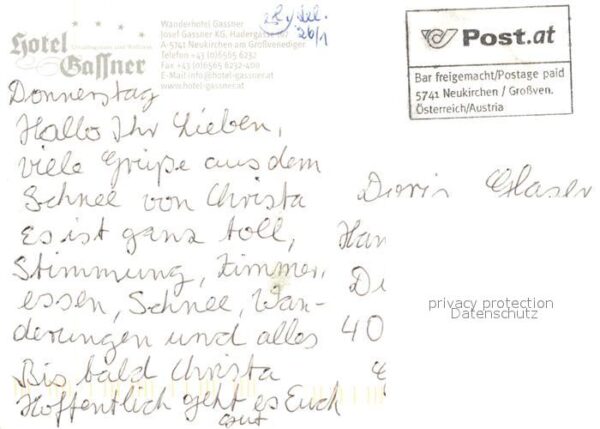 Hotel
Gassner
Wanderhotel Gassner
Josef Gassner KG, Hadergasse
A-5741 Neukirchen am Großvenediger
Telefon +43 (0)6565 6232
Fax +43 (0)6565 6232-400
E-Mail info@hotel-gassner.at
www.hotel-gassner.at
26/1
Post.at
Bar freigemacht/Postage paid
5741 Neukirchen / Großven.
Österreich/Austria
Donnerstag
Hallo Ihr Lieben,
viele Grüße aus dem
Schnee von Christa
Es ist ganz toll,
Stimmung, Zimmer,
essen, Schnee, Wan-
derungen und alles
Bis bald Christa
Hoffentlich geht es Euch
gut
Doris Glaser
Han
D
40
privacy protection
Datenschutz